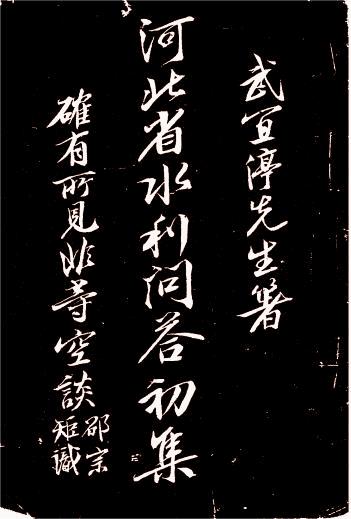 武宜停先生著
河北省水利问答初集
確有所見非等空談
邵宗
矩識